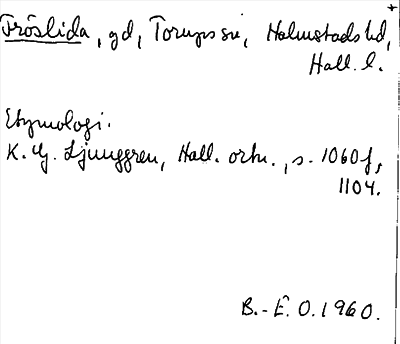 +
Fröslida, gd, Torups sn, Halmstads hd,
Hall. l.
Etymologi.
K. G. Ljunggren, Hall. ortn., s. 1060f,
1104.
B.-E. O. 1960.